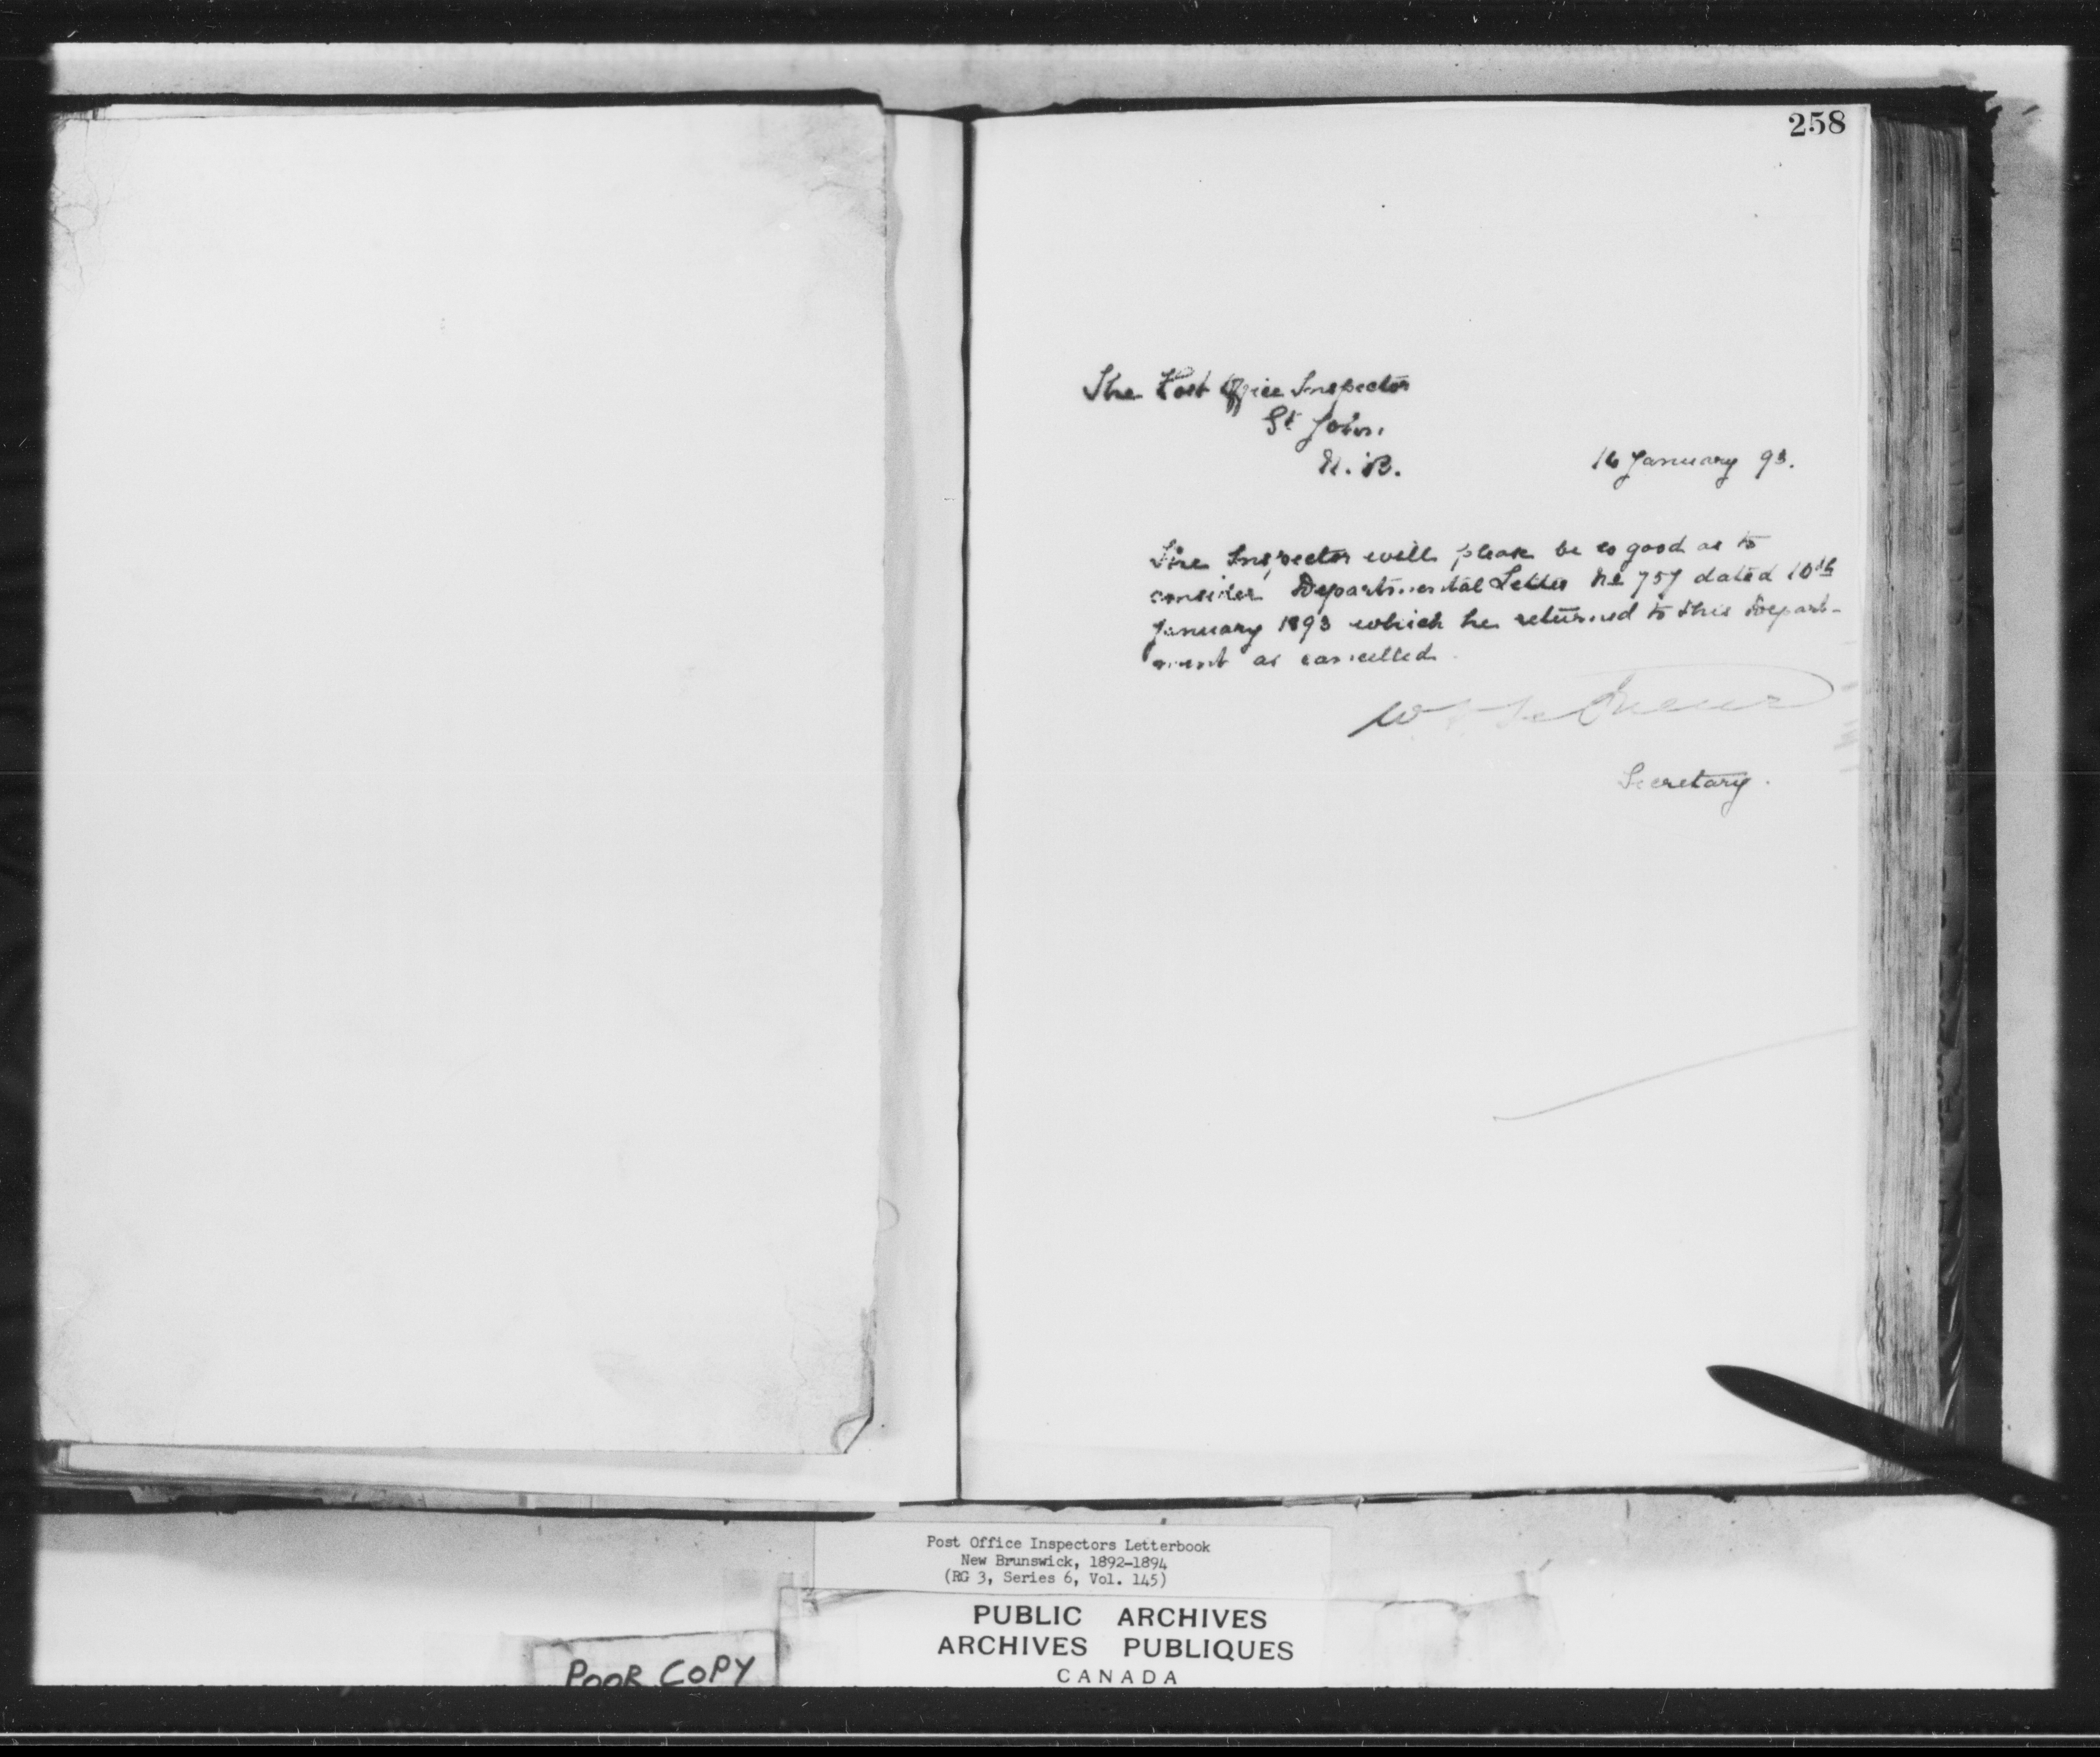 258
The Post Office Inspector
St John.
N. B.
16 January 93.
The Inspector will please be so good as to
consider Departmental Letter No 757 dated 10th
January 1893 which he returned to this Depart-
ment as cancelled.
W. Le Sueur
Secretary.
Post Office Inspectors Letterbook
New Brunswick, 1892-1894
(RG 3, Series 6, Vol. 145)
PUBLIC ARCHIVES
ARCHIVES PUBLIQUES
CANADA
POOR COPY